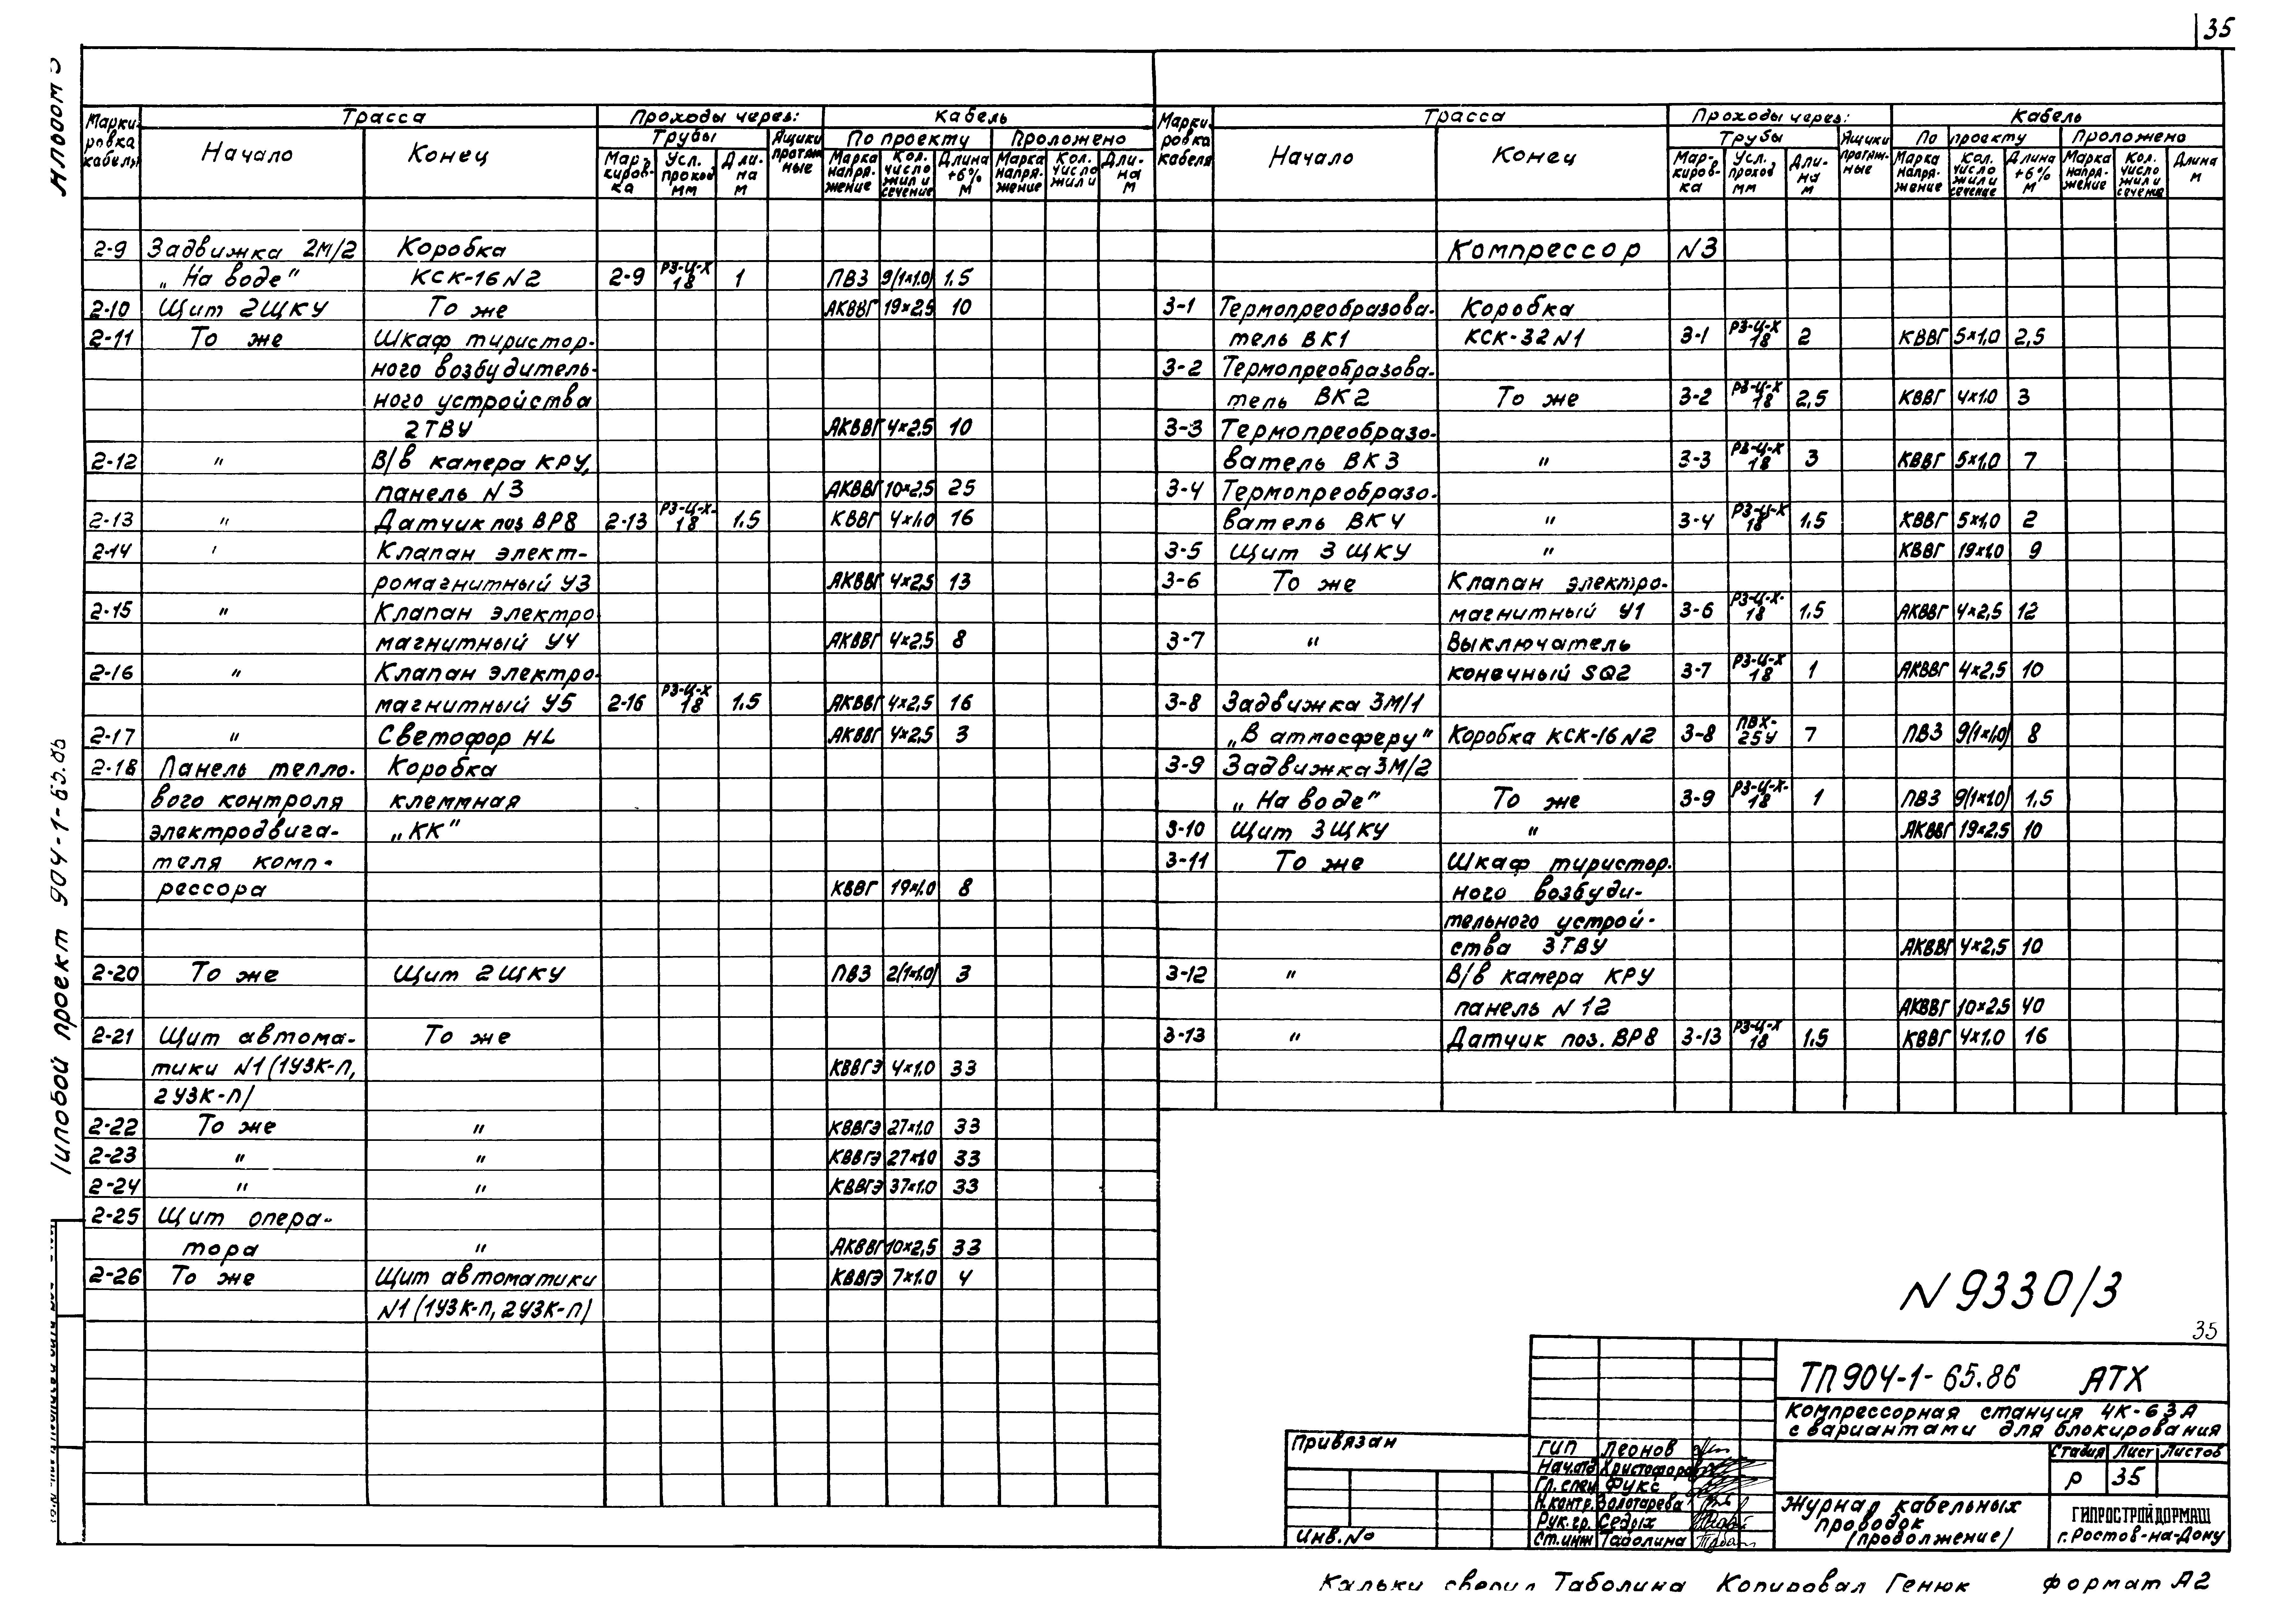 35
Альбом 3
Типовой проект 904-1-65.86
Марки-ровка кабеля | Трасса | Проходы через: | Кабель
Начало | Конец | Трубы | Ящики протяж-ные | По проекту | Проложено
Мар-киров-ка | Усл. проход мм | Дли-на м | Марка напря-жение | Кол. число жил и сечение | Длина +6% м | Марка напря-жение | Кол. число жил и | Дли-на м
2-9 Задвижка 2М/2 Коробка
„На воде" КСК-16 N2 2-9 РЗ-Ц-Х 18 1 ПВЗ 9(1×1.0) 1.5
2-10 Щит 2ЩКУ То же АКВВГ 19×2.5 10
2-11 То же Шкаф тиристор-
ного возбудитель-
ного устройства
2ТВУ АКВВГ 4×2.5 10
2-12 " В/в камера КРУ,
панель N3 АКВВГ 10×2,5 25
2-13 " Датчик поз ВР8 2-13 РЗ-Ц-Х-18 1.5 КВВГ 4×1.0 16
2-14 " Клапан элект-
ромагнитный У3 АКВВГ 4×2.5 13
2-15 " Клапан электро
магнитный У4 АКВВГ 4×2.5 8
2-16 " Клапан электро-
магнитный У5 2-16 РЗ-Ц-Х 18 1.5 АКВВГ 4×2,5 16
2-17 " Светофор HL АКВВГ 4×2.5 3
2-18 Панель тепло- Коробка
вого контроля клеммная
электродвига- „КК"
теля комп-
рессора КВВГ 19×1.0 8
2-20 То же Щит 2ЩКУ ПВЗ 2(1×1.0) 3
2-21 Щит автома- То же
тики N1 (1УЗК-П, КВВГЭ 4×1.0 33
2УЗК-П)
2-22 То же " КВВГЭ 27×1.0 33
2-23 " " КВВГЭ 27×1.0 33
2-24 " " КВВГЭ 37×1.0 33
2-25 Щит опера-
тора " АКВВГ 10×2,5 33
2-26 То же Щит автоматики КВВГЭ 7×1.0 4
N1 (1УЗК-П, 2УЗК-П)
Марки-ровка кабеля | Трасса | Проходы через: | Кабель
Начало | Конец | Трубы | Ящики протяж-ные | По проекту | Проложено
Мар-киров-ка | Усл. проход мм | Дли-на м | Марка напря-жение | Кол. число жил и сечение | Длина +6% м | Марка напря-жение | Кол. число жил и сечение | Длина м
Компрессор N3
3-1 Термопреобразова- Коробка
тель ВК1 КСК-32 N1 3-1 РЗ-Ц-Х 18 2 КВВГ 5×1,0 2,5
3-2 Термопреобразова-
тель ВК2 То же 3-2 РЗ-Ц-Х 18 2,5 КВВГ 4×1.0 3
3-3 Термопреобразо-
ватель ВК3 " 3-3 РЗ-Ц-Х 18 3 КВВГ 5×1,0 7
3-4 Термопреобразо-
ватель ВК4 " 3-4 РЗ-Ц-Х 18 1,5 КВВГ 5×1,0 2
3-5 Щит 3ЩКУ " КВВГ 19×1.0 9
3-6 То же Клапан электро-
магнитный У1 3-6 РЗ-Ц-Х-18 1.5 АКВВГ 4×2,5 12
3-7 " Выключатель
конечный SQ2 3-7 РЗ-Ц-Х 18 1 АКВВГ 4×2,5 10
3-8 Задвижка 3М/1
„В атмосферу" Коробка КСК-16 N2 3-8 ПВХ-25У 7 ПВЗ 9(1×1,0) 8
3-9 Задвижка 3М/2
„На воде" То же 3-9 РЗ-Ц-Х-18 1 ПВЗ 9(1×1.0) 1,5
3-10 Щит 3ЩКУ " АКВВГ 19×2,5 10
3-11 То же Шкаф тиристор-
ного возбуди-
тельного устрой-
ства 3ТВУ АКВВГ 4×2,5 10
3-12 " В/в камера КРУ
панель N 12 АКВВГ 10×2.5 40
3-13 " Датчик поз. ВР8 3-13 РЗ-Ц-Х 18 1.5 КВВГ 4×1.0 16
N9330/3
35
ТП 904-1-65.86 АТХ
Компрессорная станция 4К-63А
с вариантами для блокирования
Стадия Лист Листов
Р 35
Журнал кабельных
проводок
(продолжение)
ГИПРОСТРОЙДОРМАШ
г. Ростов-на-Дону
Привязан
Инв. No
ГИП Леонов
Нач.отд Христофоров
Гл. спец Фукс
Н.контр. Золотарева
Рук.гр. Седых
Ст.инж Таболина
Кальки сверил Таболина Копировал Генюк формат А2